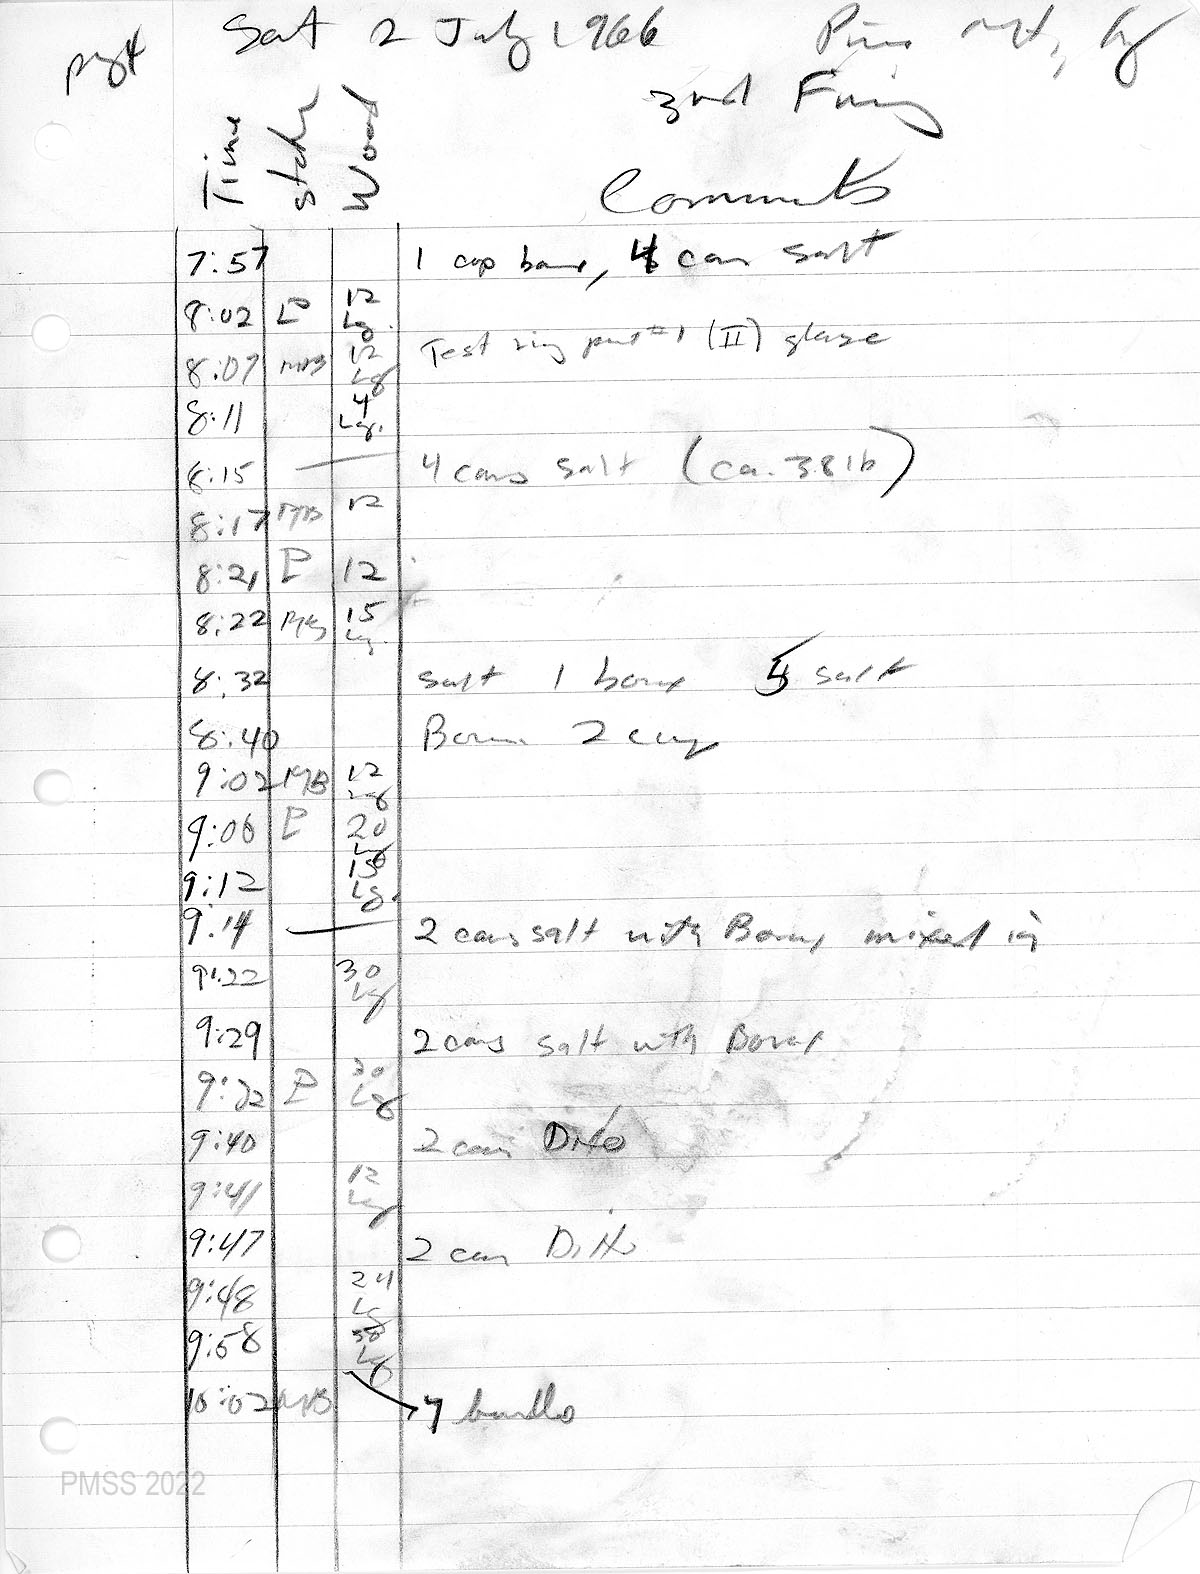 pg 4
Sat 2 July 1966 Pine Mt, Ky
2nd Firing
Time Stoke Wood Comments
7:57 1 cup borax, 4 cans salt
8:02 P 12 Lg.
8:07 MB 12 Lg Test ring pull #1 (II) glaze
8:11 4 Lg.
8:15 — 4 cans salt (ca. 3.8 lb)
8:17 MB 12
8:21 P 12
8:22 MB 15 Lg.
8:32 salt 1 borax 5 salt
8:40 Borax 2 cup
9:02 MB 12 Lg
9:06 P 20 Lg
9:12 15 Lg.
9:14 — 2 cans salt with Borax mixed in
9:22 30 Lg
9:29 2 cans salt with Borax
9:32 P 30 Lg
9:40 2 cans Ditto
9:41 12 Lg
9:47 2 can Ditto
9:48 24 Lg
9:58 Lg
10:02 MB 7 bundles
PMSS 2022